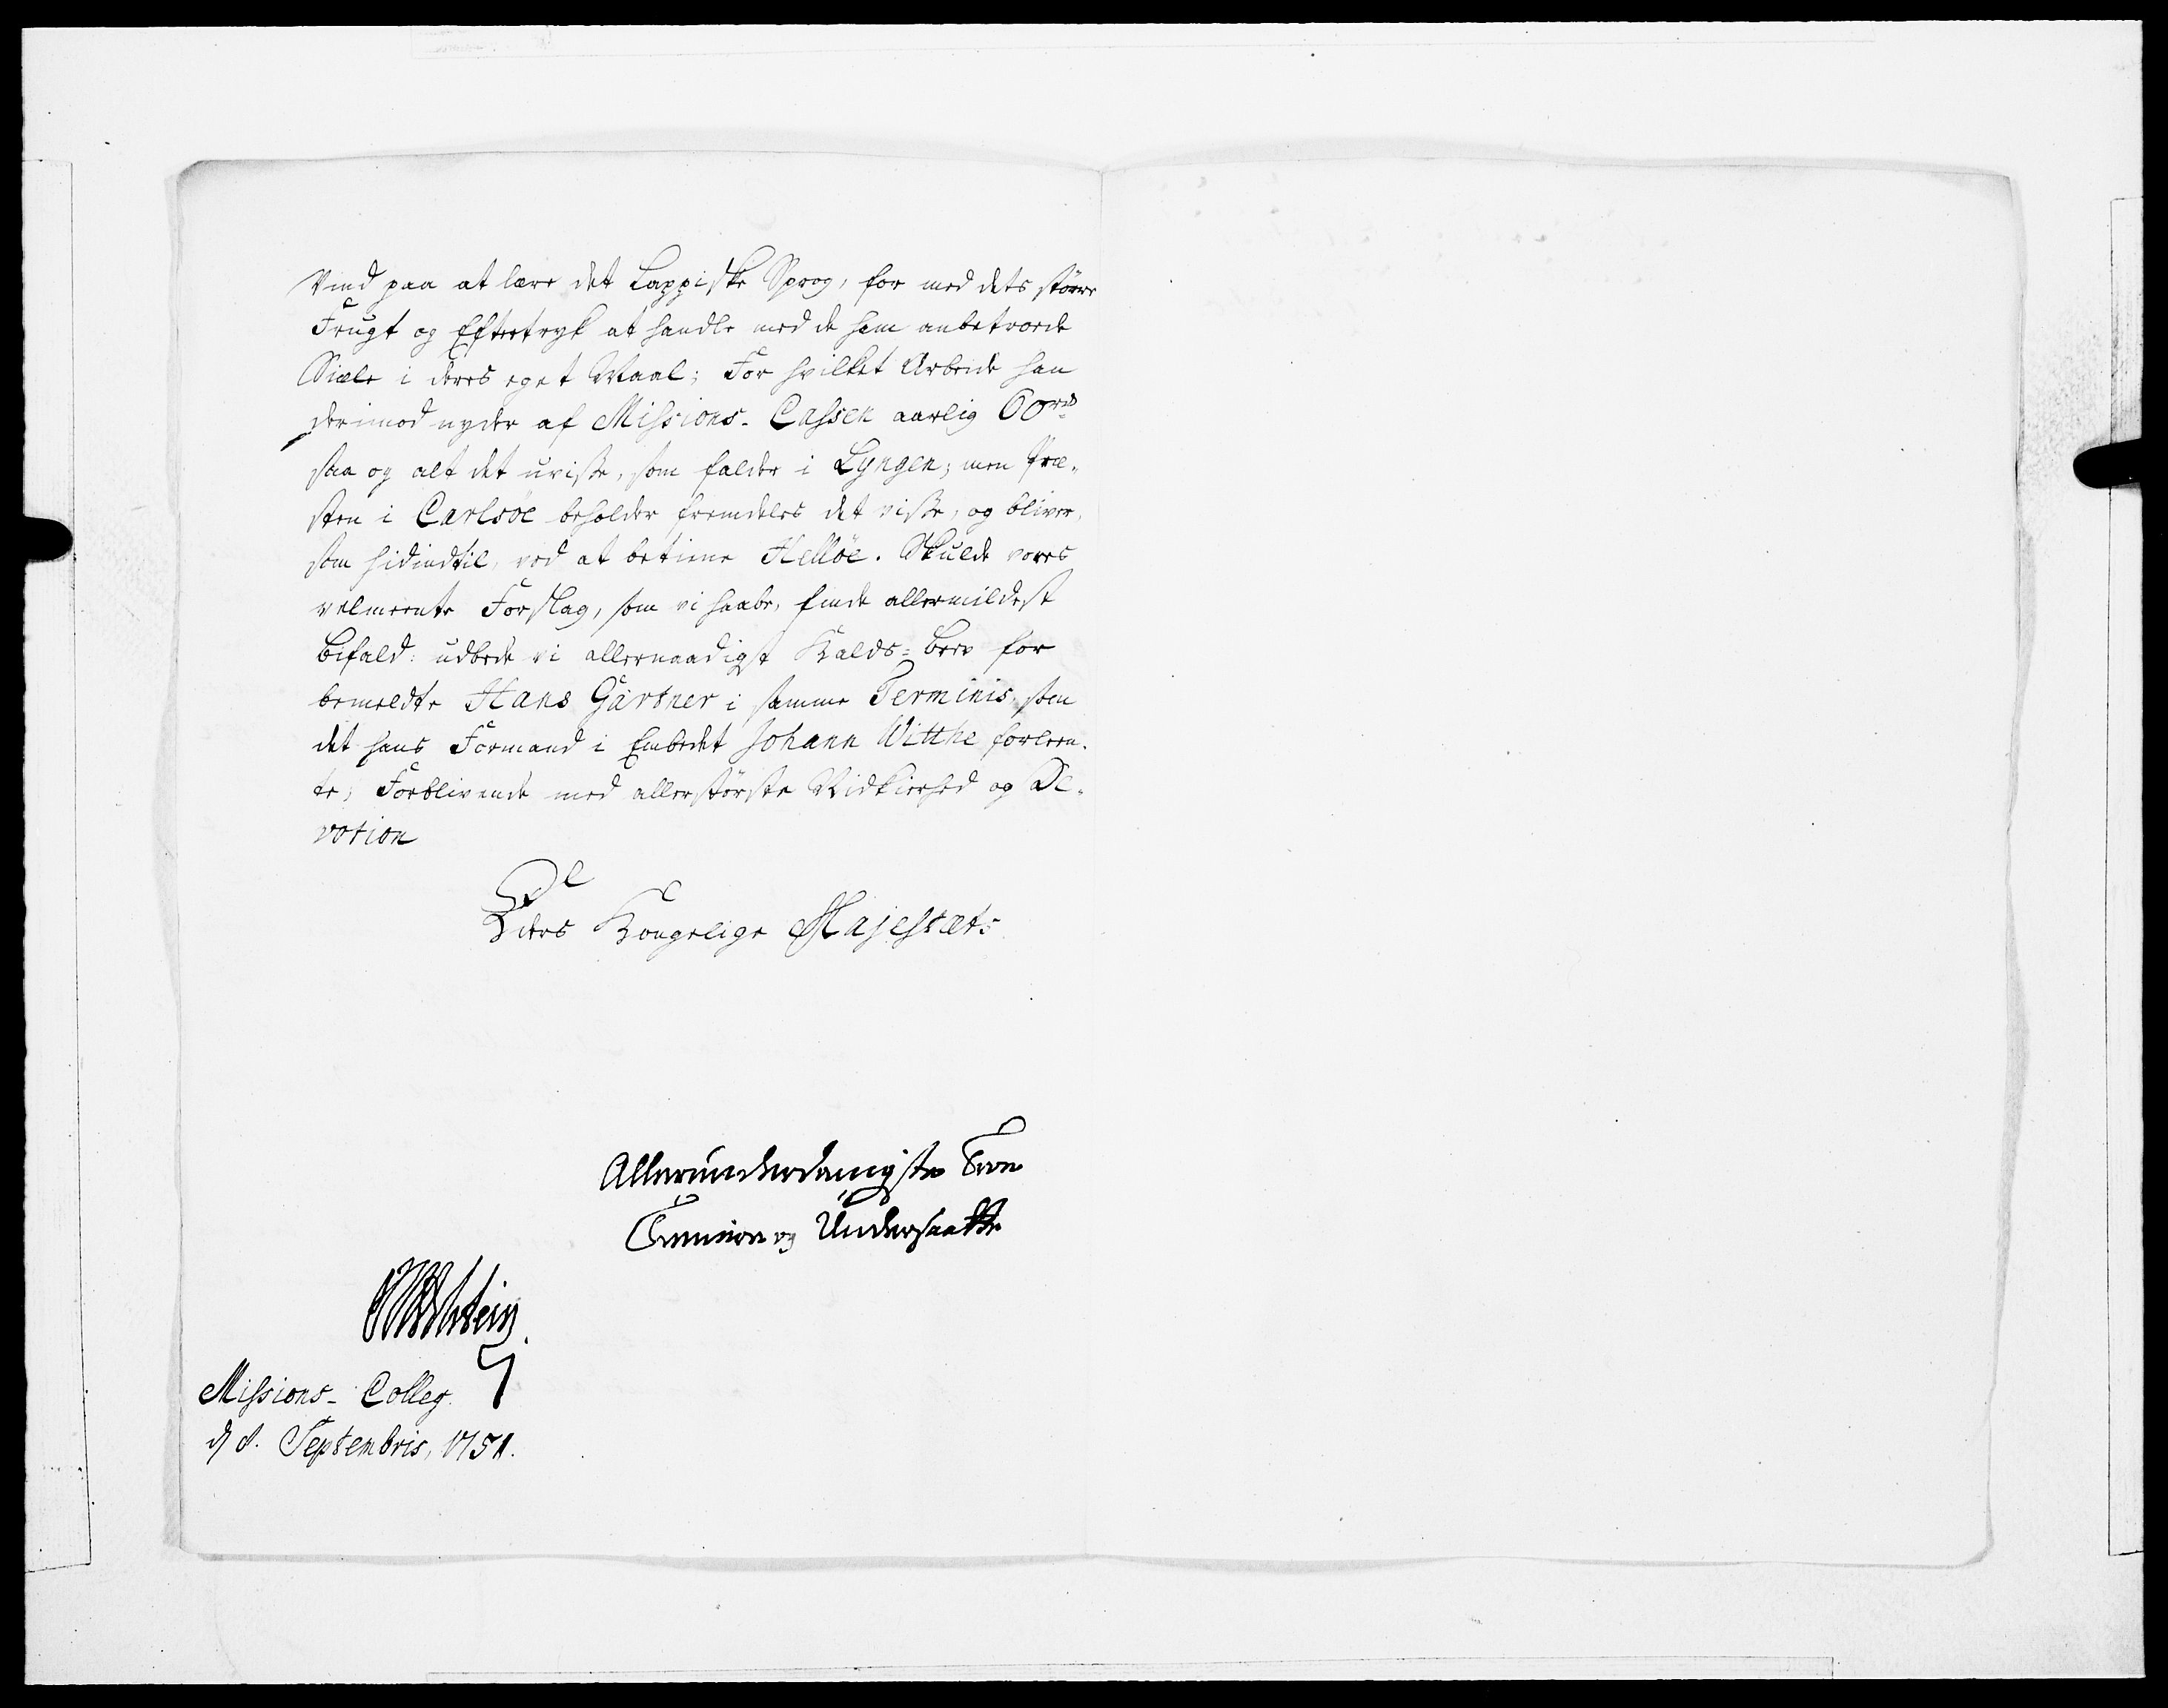 Vind paa at lære det Lappiske Sprog, for med dets større
Frugt og Eftertryk at handle med de ham anbetroede
Siæle i deres eget Maal; For hvilket Arbeide han
derimod nyder af Missions-Cassen aarlig 60 rd
saa og alt det uvisse, som falder i Lyngen; men Præ-
sten i Carlsöe beholder fremdeles det visse, og bliver,
som hidindtil, ved at betiene Helløe. Skulde vores
velmeente Forslag, som vi haabe, finde allermildest
Bifald: udbede vi allernaadigst Kalds-Brev for
bemeldte Hans Gärtner i samme Terminis, som
det hans Formand i Embedet Johann Witthe forleen-
te; Forblivende med allerstørste Nidkierhed og De-
votion
Deres Kongelige Majestæts
Allerunderdanigste Troe
Tienere og Undersaatter
Holstein
Missions-Colleg.
d. 8. Septembris, 1751.